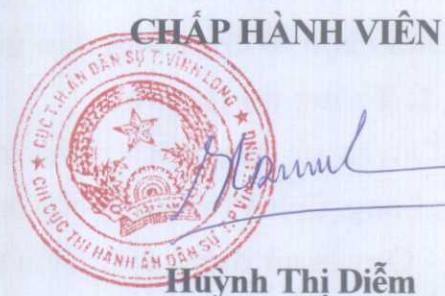 CHẤP HÀNH VIÊN
CỤC T.H.ÁN DÂN SỰ T.VĨNH LONG
★ CHI CỤC THI HÀNH ÁN DÂN SỰ TP VĨNH LONG ★
VIỆT NAM
Huỳnh Thị Diễm